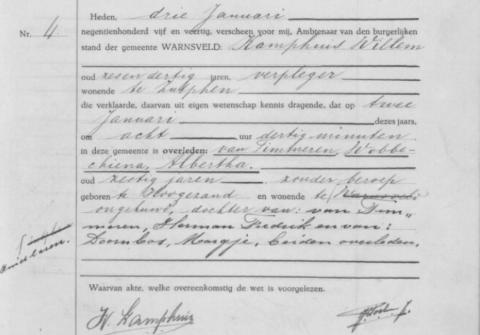 Nr. 4.
Heden, drie Januari
negentienhonderd vijf en veertig, verscheen voor mij, Ambtenaar van den burgerlijken
stand der gemeente WARNSVELD: Kamphuis Willem
oud zesendertig jaren, verpleger
wonende te Zutphen
die verklaarde, daarvan uit eigen wetenschap kennis dragende, dat op twee
Januari dezes jaars,
om acht uur dertig minuten
in deze gemeente is overleden: van Timmeren, Wobbe-
chiena, Albertha.
oud zestig jaren zonder beroep
geboren te Hoogezand en wonende te
ongehuwd, dochter van: van Tim-
meren, Herman Fredrik en van:
Doornbos, Margje, beiden overleden.
Waarvan akte, welke overeenkomstig de wet is voorgelezen.
W. Kamphuis